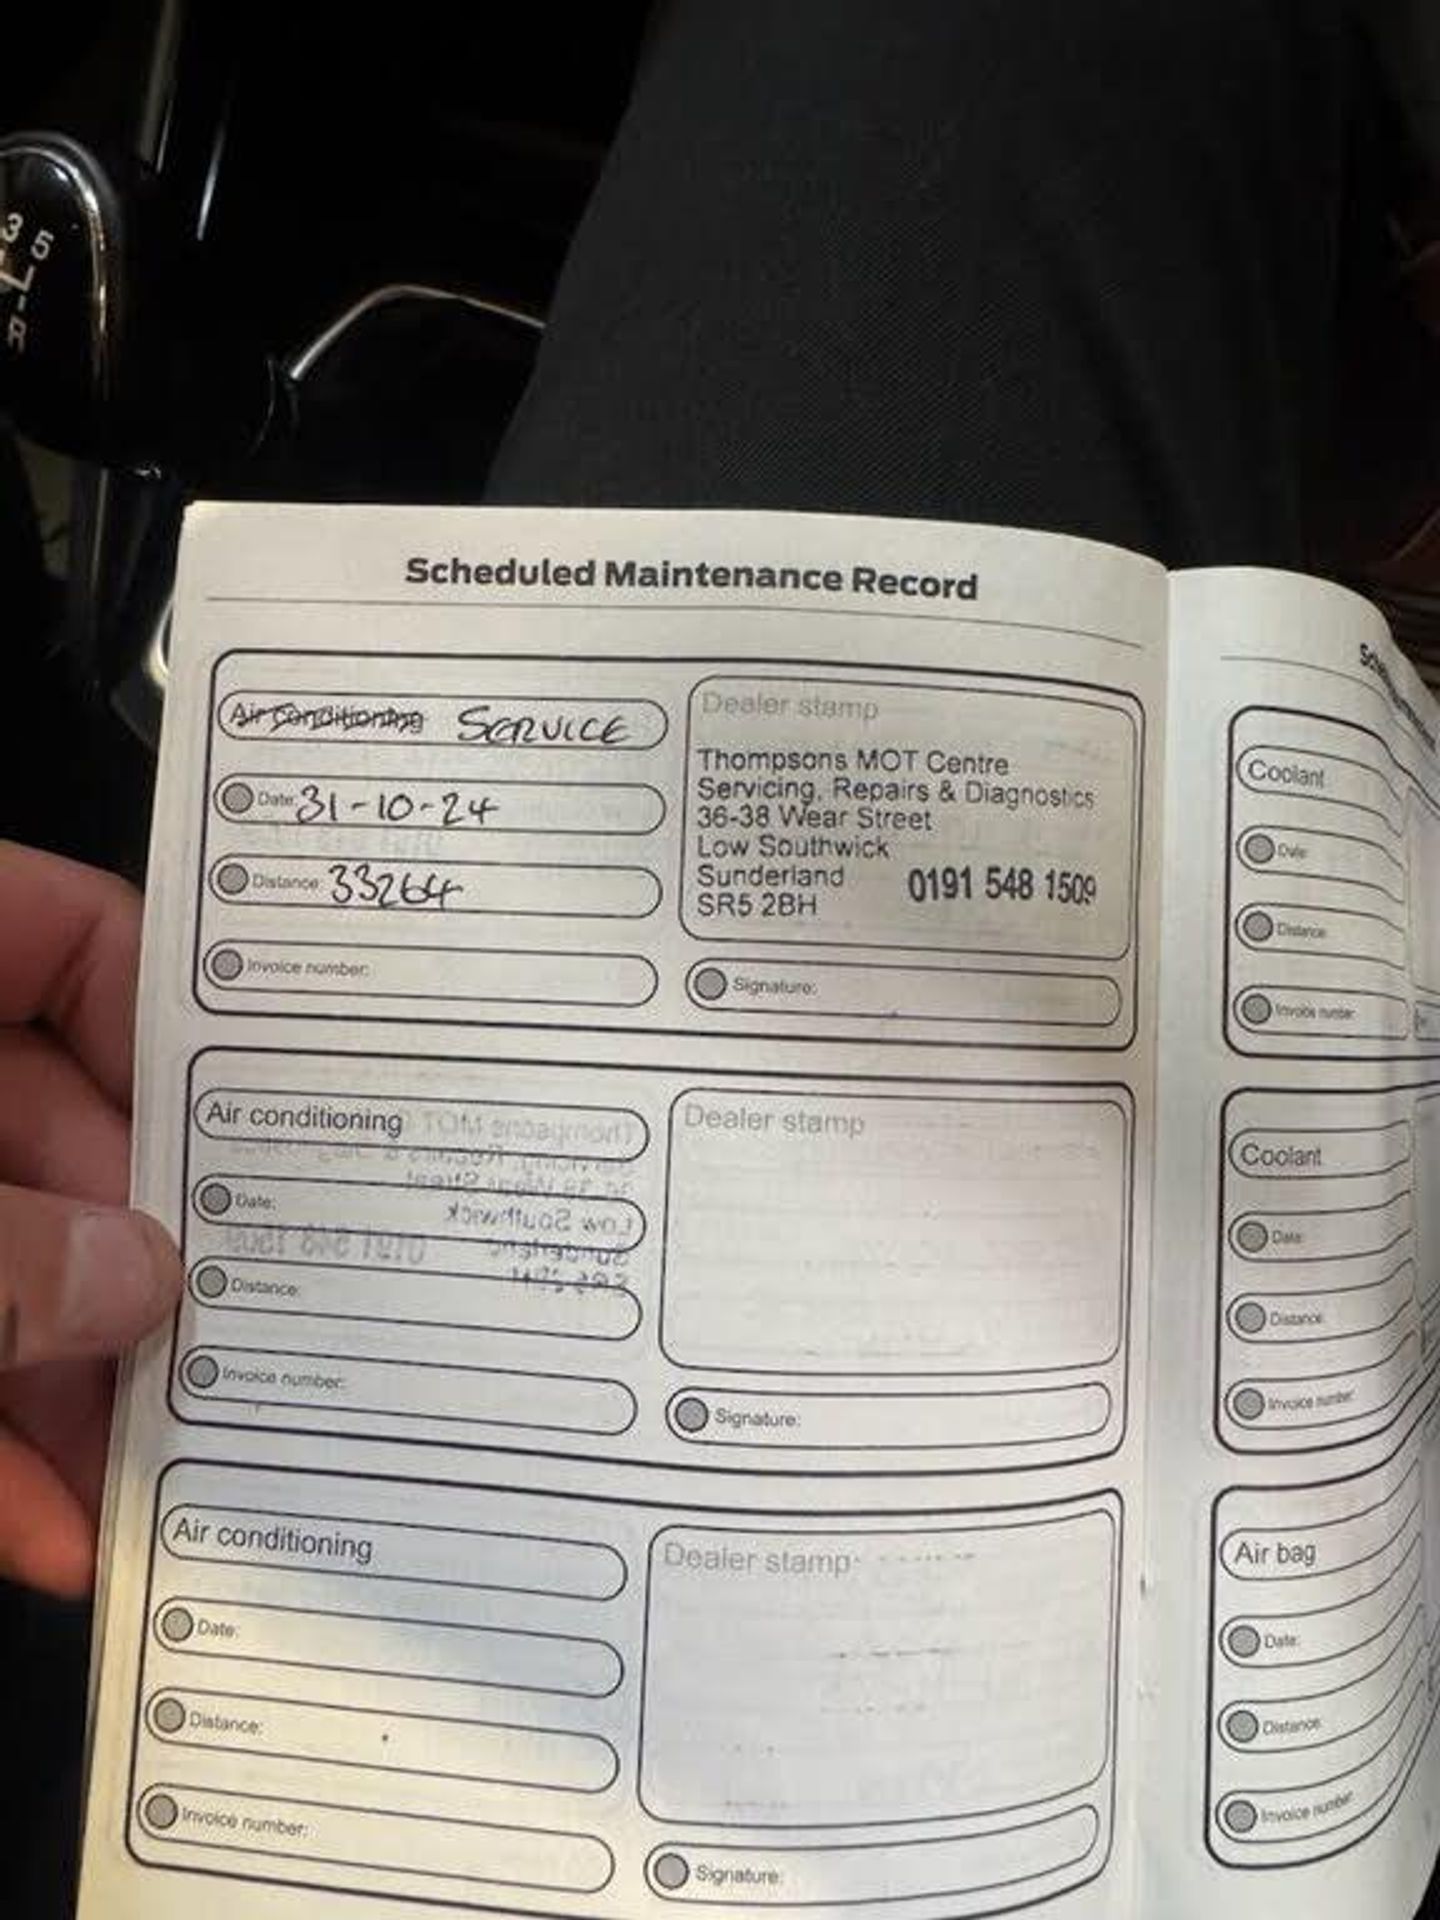 3 5
R
Scheduled Maintenance Record
Air conditioning SERVICE
Date: 31-10-24
Distance: 33264
Invoice number:
Dealer stamp
Thompsons MOT Centre
Servicing, Repairs & Diagnostics
36-38 Wear Street
Low Southwick
Sunderland 0191 548 1509
SR5 2BH
Signature:
Air conditioning
Date:
Distance:
Invoice number:
Dealer stamp
Signature:
Air conditioning
Date:
Distance:
Invoice number:
Dealer stamp
Signature:
Coolant
Date:
Distance:
Invoice number:
Coolant
Date:
Distance:
Invoice number:
Air bag
Date:
Distance:
Invoice number: